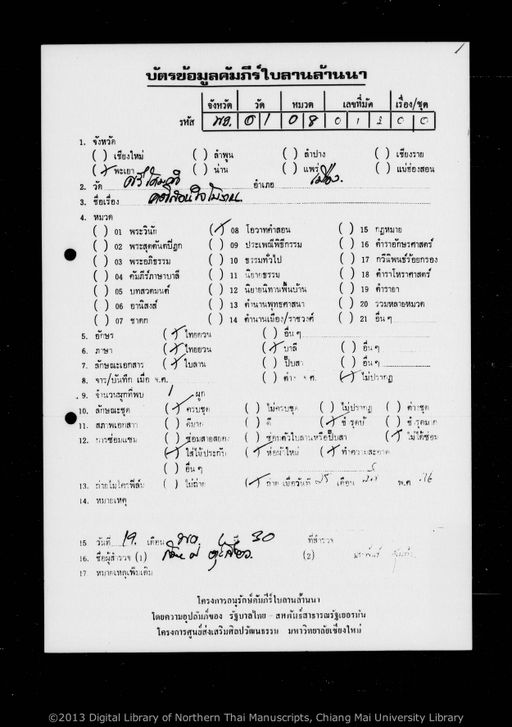 บัตรข้อมูลคัมภีร์ใบลานล้านนา
จังหวัด วัด หมวด เลขที่มัด เรื่อง/ชุด
รหัส พย. 0 1 0 8 0 1 3 0 0
1. จังหวัด
( ) เชียงใหม่ ( ) ลำพูน ( ) ลำปาง ( ) เชียงราย
(/) พะเยา ( ) น่าน ( ) แพร่ ( ) แม่ฮ่องสอน
2. วัด ศรีโคมคำ อำเภอ เมือง.
3. ชื่อเรื่อง
4. หมวด
( ) 01 พระวินัย (/) 08 โอวาทคำสอน ( ) 15 กฎหมาย
( ) 02 พระสุตตันตปิฎก ( ) 09 ประเพณีพิธีกรรม ( ) 16 ตำราอักษรศาสตร์
( ) 03 พระอภิธรรม ( ) 10 ธรรมทั่วไป ( ) 17 กวีนิพนธ์ร้อยกรอง
( ) 04 คัมภีร์ภาษาบาลี ( ) 11 นิยายธรรม ( ) 18 ตำราโหราศาสตร์
( ) 05 บทสวดมนต์ ( ) 12 นิยายนิทานพื้นบ้าน ( ) 19 ตำรายา
( ) 06 อานิสงส์ ( ) 13 ตำนานพุทธศาสนา ( ) 20 รวมหลายหมวด
( ) 07 ชาดก ( ) 14 ตำนานเมือง/ราชวงศ์ ( ) 21 อื่น ๆ
5. อักษร (/) ไทยยวน ( ) อื่น ๆ
6. ภาษา (/) ไทยยวน (/) บาลี ( ) อื่น ๆ
7. ลักษณะเอกสาร (/) ใบลาน ( ) ปั๊บสา ( ) อื่น ๆ
8. จาร/บันทึก เมื่อ จ.ศ. ( ) (/) ไม่ปรากฏ
9. จำนวนผูกที่พบ 1 ผูก
10. ลักษณะชุด (/) ครบชุด ( ) ไม่ครบชุด ( ) ไม่ปรากฏ ( )
11. สภาพเอกสาร ( ) ดีมาก ( ) ดี (/) ชำรุด ( ) ชำรุดมาก
12. การซ่อมแซม ( ) ซ่อมสายสยอง ( ) ซ่อมตัวใบลานหรือปั๊บสา (/) ไม่ได้ซ่อม
(/) ใส่ไม้ประกับ (/) ห่อผ้าใหม่ (/) ทำความสะอาด
( ) อื่น ๆ
13. ถ่ายไมโครฟิล์ม ( ) ไม่ถ่าย (/) ถ่าย เมื่อวันที่ 25 เดือน พ.ศ.
14. หมายเหตุ
15 วันที่ 19. เดือน พย. 30 ที่สำรวจ
16. ชื่อผู้สำรวจ (1) (2)
17 หมายเหตุเพิ่มเติม
โครงการอนุรักษ์คัมภีร์ใบลานล้านนา
โดยความอุปถัมภ์ของ รัฐบาลไทย - สหพันธ์สาธารณรัฐเยอรมัน
โครงการศูนย์ส่งเสริมศิลปวัฒนธรรม มหาวิทยาลัยเชียงใหม่
©2013 Digital Library of Northern Thai Manuscripts, Chiang Mai University Library